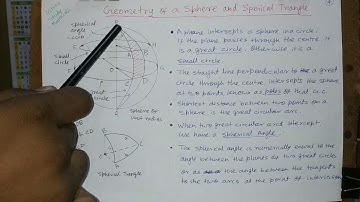 Geometry of a Sphere and Sperical Triangle
Spherical
angle
Small
Circle
Sphere of
unit radius
Spherical Triangle
• A plane intersects a sphere in a circle.
If the plane passes through the centre it
is a great circle. Otherwise it is a
Small circle.
• The straight line perpendicular to a great
circle through the centre intersects the sphere
at two points known as poles of that G.C
• Shortest distance between two points on a
Sphere is the great circular arc.
• When two great circular arcs intercept
We have a spherical angle.
• The spherical angle is numerically equal to the
angle between the planes of two great circles
or as the angle between the tangents
to the two arcs at the point of intersection